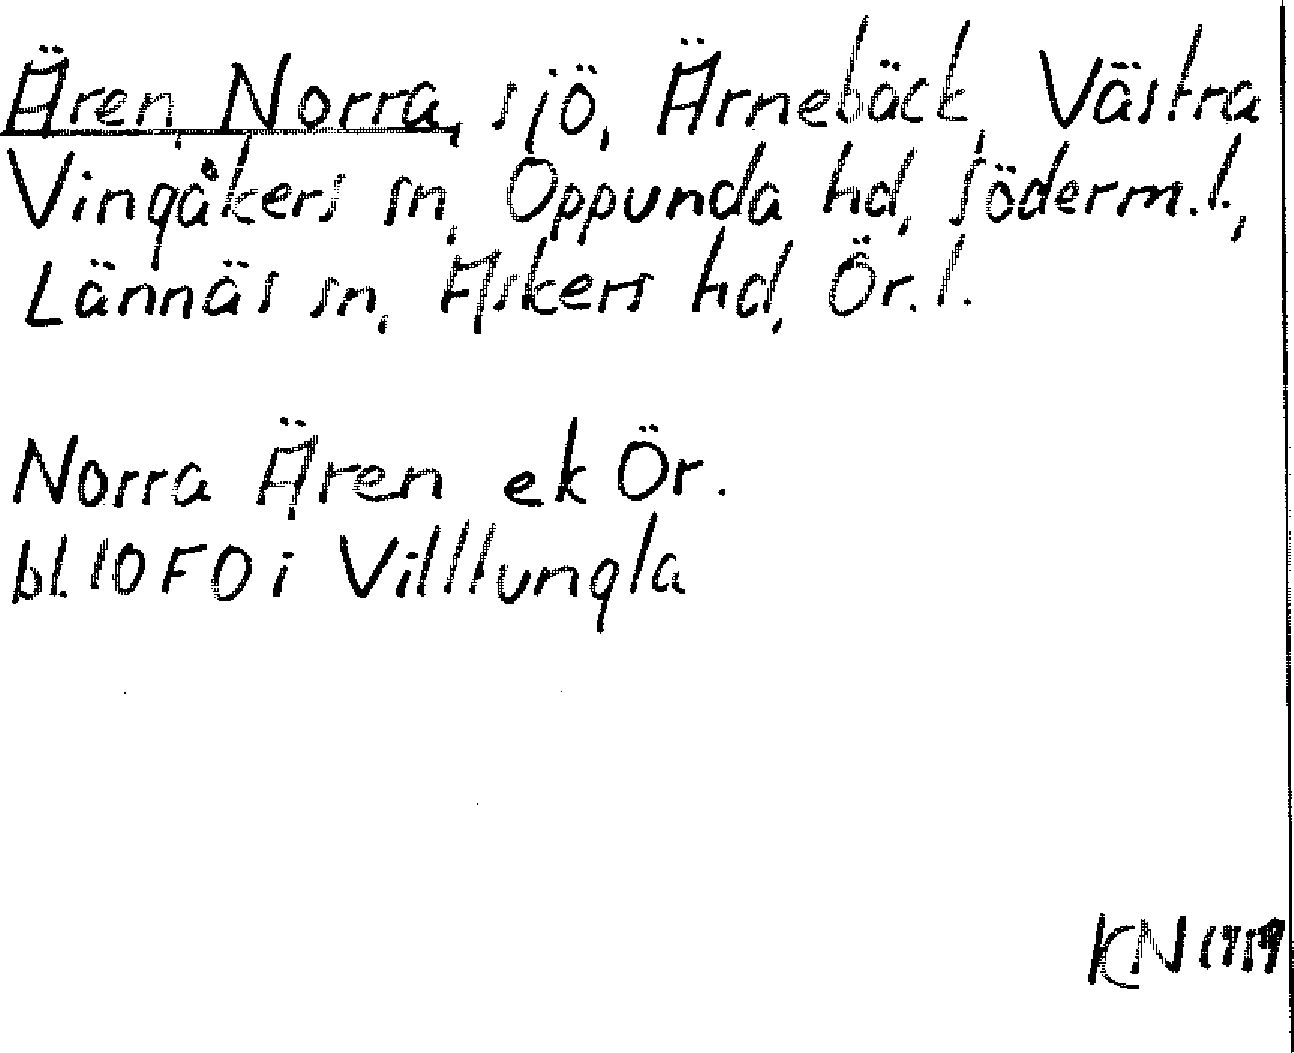 Ären, Norra, sjö, Ärnebäck, Västra
Vingåkers sn, Oppunda hd, Söderm.l.,
Lännäs sn, Askers hd, Ör.l.
Norra Ären ek Ör.
bl. 10F0i Villlungla
KN